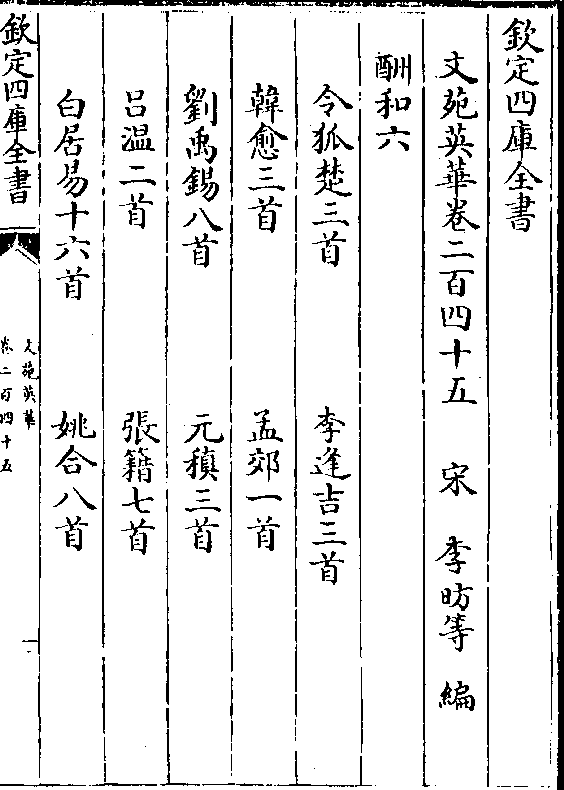 欽定四庫全書
文苑英華卷二百四十五　宋　李昉等　編
酬和六
令狐楚三首　李逢吉三首
韓愈三首　孟郊一首
劉禹錫八首　元稹三首
呂溫二首　張籍七首
白居易十六首　姚合八首
欽定四庫全書
文苑英華
卷二百四十五
一